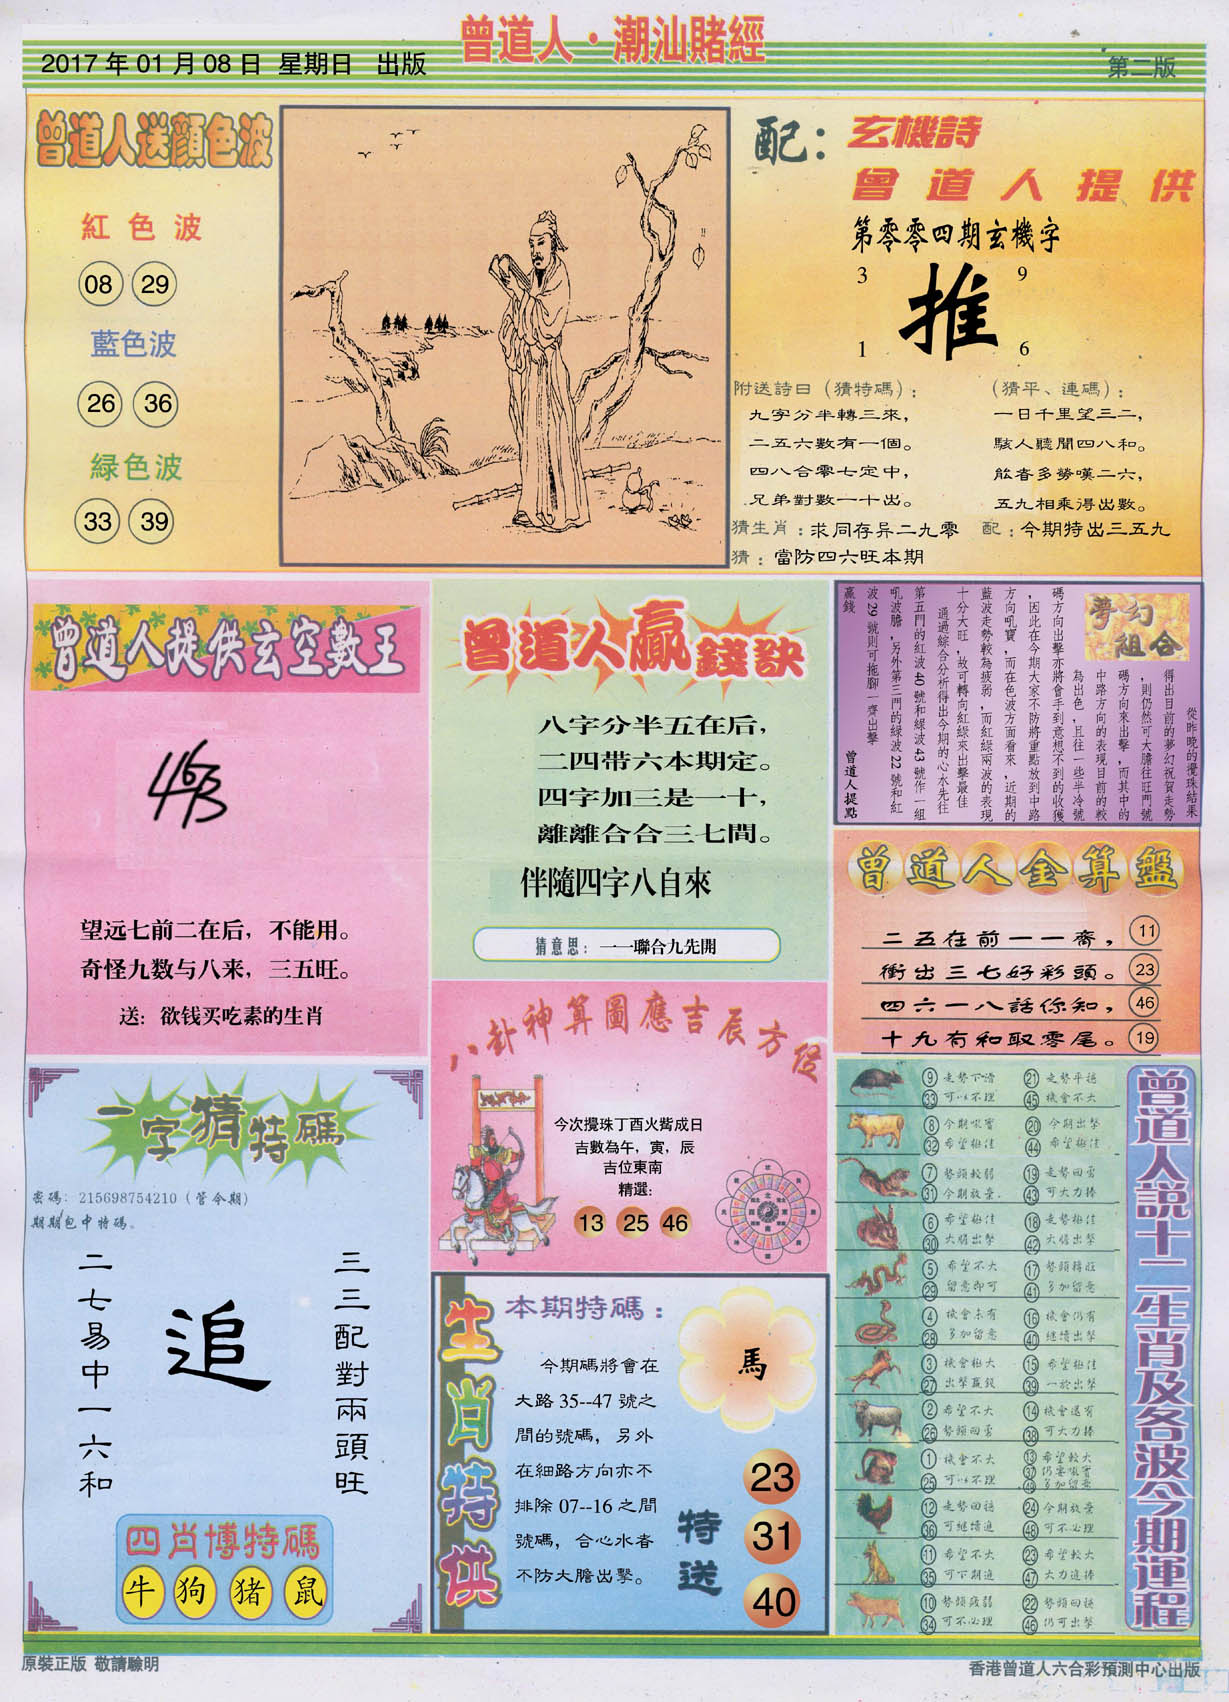 曾道人·潮汕賭經
2017 年 01 月 08 日 星期日 出版
第二版
曾道人送顏色波
紅色波
08 29
藍色波
26 36
緑色波
33 39
配：玄機詩
曾道人提供
第零零四期玄機字
3 9
推
1 6
附送詩曰（猜特碼）：
九字分半轉三來，
二五六數有一個。
四八合零七定中，
兄弟對數一十出。
（猜平、連碼）：
一日千里望三二，
駭人聽聞四八和。
能者多勞嘆二六，
五九相乘得出數。
猜生肖：求同存异二九零
配：今期特出三五九
猜：當防四六旺本期
曾道人提供玄空數王
463
望远七前二在后，不能用。
奇怪九数与八来，三五旺。
送：欲钱买吃素的生肖
曾道人贏錢訣
八字分半五在后，
二四带六本期定。
四字加三是一十，
離離合合三七間。
伴隨四字八自來
猜意思：一一聯合九先開
夢幻組合
從昨晚的攪珠結果
得出目前的夢幻祝賀走勢
，則仍然可大膽往旺門號
碼方向來出擊，而其中的
中路方向的表現目前的較
為出色，且往一些半冷號
碼方向出擊亦將會手到意想不到的收獲
，因此在今期大家不防將重點放到中路
方向吼寶，而在色波方面看來，近期的
藍波走勢較為疲弱，而紅緑兩波的表現
十分大旺，故可轉向紅緑來出擊最佳
通過綜合分析得出今期的心水先往
第五門的紅波40號和緑波43號作一組
吼波膽，另外第三門的緑波22號和紅
波29號則可拖腳一齊出擊
贏錢
曾道人提點
曾道人金算盤
二五在前一一齊， 11
衝出三七好彩頭。 23
四六一八話你知， 46
十九有和取零尾。 19
八卦神算圖應吉辰方位
今次攪珠丁酉火觜成日
吉數為午，寅，辰
吉位東南
精選:
13 25 46
一字猜特碼
密碼：215698754210（管令期）
期期包中特碼。
三三配對兩頭旺
追
二七易中一六和
四肖博特碼
牛 狗 猪 鼠
生肖特供
本期特碼：
今期碼將會在
大路 35--47 號之
間的號碼，另外
在細路方向亦不
排除 07--16 之間
號碼，合心水者
不防大膽出擊。
馬
特送
23
31
40
曾道人説十二生肖及各波今期運程
9 走勢下滑 21 走勢平穩
33 可以不理 45 機會不大
8 今期吼寶 20 今期出擊
32 希望極佳 44 希望極佳
7 勢頭較弱 19 走勢回勇
31 今期放棄 43 可大力捧
6 希望極佳 18 走勢極佳
30 大膽出擊 42 大膽出擊
5 希望不大 17 勢頭轉旺
29 留意即可 41 多加留意
4 機會未有 16 機會仍有
28 多加留意 40 繼續出擊
3 機會極大 15 希望極佳
27 出擊贏錢 39 一於出擊
2 希望不大 14 機會還有
26 勢頭回勇 38 可大力捧
1 機會不大 13 希望較大
25 可以不理 37 仍要吼寶
49 多加留意
12 走勢回穩 24 今期放棄
36 可繼續追 48 可不必理
11 希望不大 23 希望較大
35 可下期追 47 大力追捧
10 勢頭疲弱 22 勢頭回穩
34 可不必理 46 仍可出擊
原裝正版 敬請驗明
香港曾道人六合彩預測中心出版